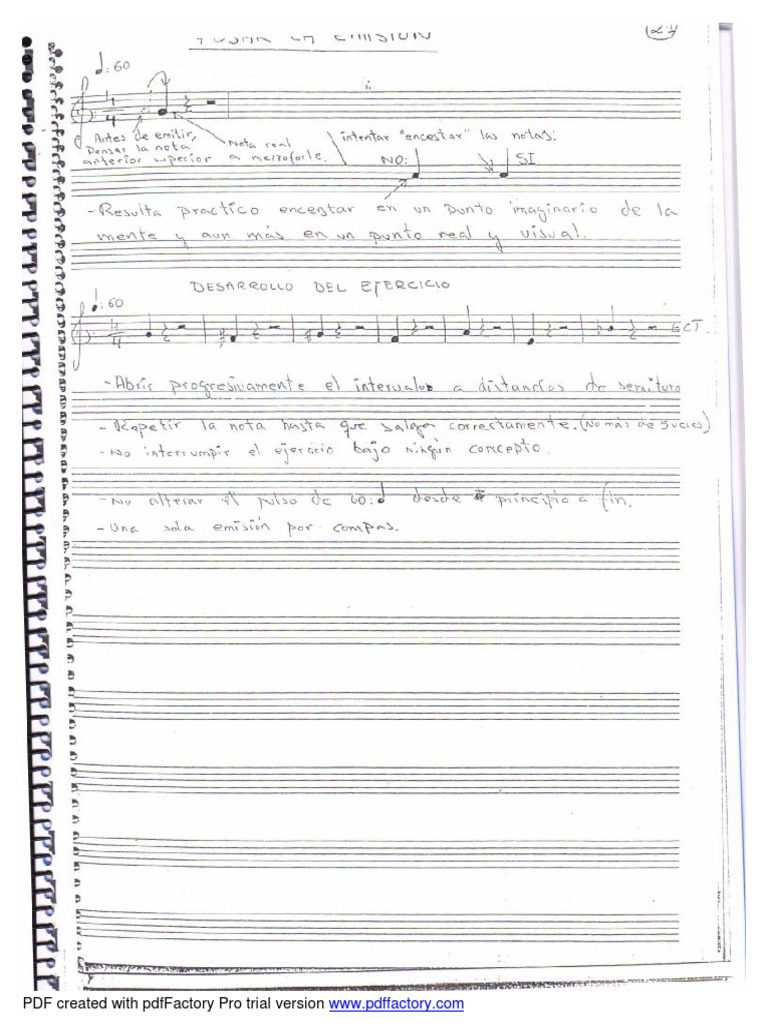 LA EMISION
27
♩: 60
4/4
Antes de emitir,
Pensar la nota
anterior superior
Nota real
a mezzoforte.
intentar "encestar" las notas:
NO:
SI
- Resulta practico encestar en un punto imaginario de la
mente y aun más en un punto real y visual.
DESARROLLO DEL EJERCICIO
♩: 60
4/4
ECT.
- Abrir progresivamente el intervalo a distancias de semitono
- Repetir la nota hasta que salga correctamente. (No más de 5 veces)
- No interrumpir el ejercicio bajo ningún concepto.
- No alterar el pulso de 60: ♩ desde principio a fin.
- Una sola emisión por compas.
PDF created with pdfFactory Pro trial version www.pdffactory.com